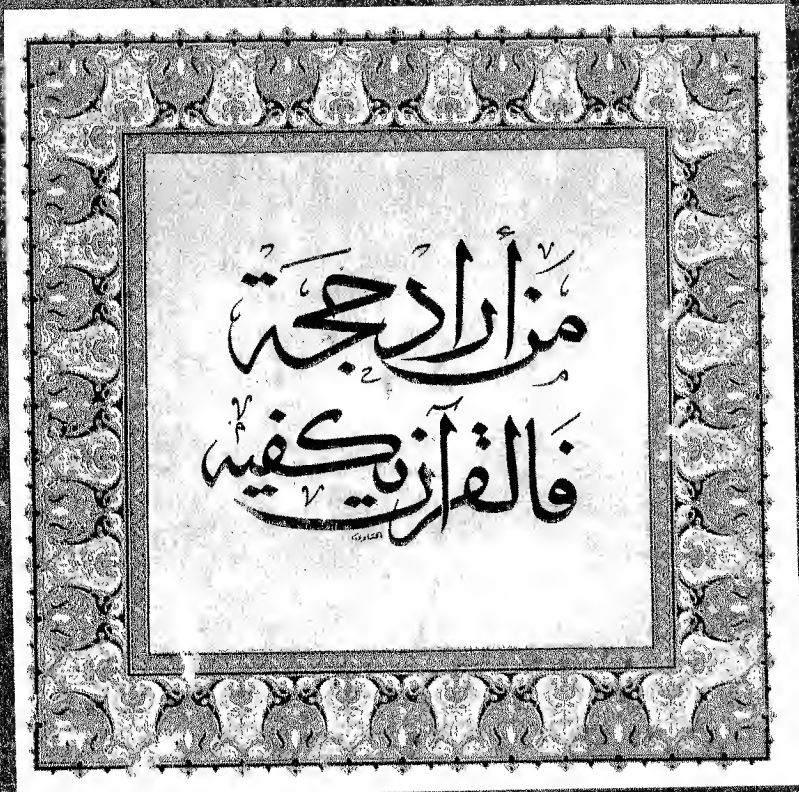 من أراد حجة
فالقرآن يكفيه